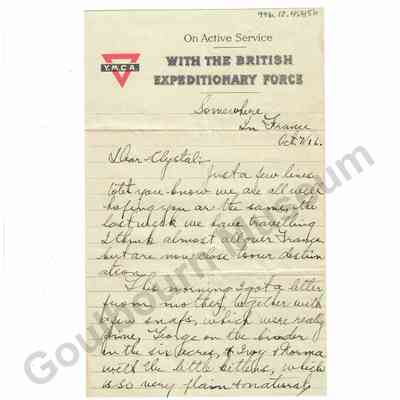 996.12.45454
On Active Service
Y.M.C.A
WITH THE BRITISH
EXPEDITIONARY FORCE
Somewhere
In France
Oct 7/16.
Dear Clystal:
Just a few lines
to let you know we are all well
hoping you are the same, the
last week we have travelling
I think almost all over France
but are now close to our destin
ation.
This morning I got a letter
from mother, together with
a few snaps, which were really
fine, George on the binder
in the six acres, & Ivy & Norma
with the little kittens, which
is so very plain & natural
Goulbourn Museum